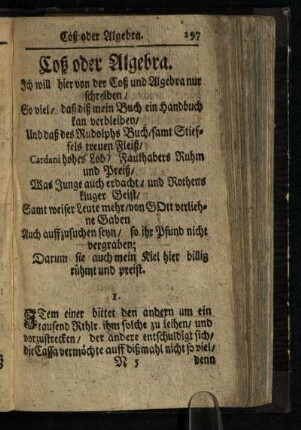 Coß oder Algebra. 297
Coß oder Algebra.
Ich will hier von der Coß und Algebra nur
schreiben/
So viel/ daß diß mein Buch ein Handbuch
kan verbleiben/
Und daß des Rudolphs Buch/ samt Stief-
fels treuen Fleiß/
Cardani hohes Lob/ Faulhabers Ruhm
und Preiß/
Was Junge auch erdacht/ und Rothens
kluger Geist/
Samt weiser Leute mehr/ von GOtt verlieh-
ne Gaben
Auch auffzusuchen seyn/ so ihr Pfund nicht
vergraben;
Darum sie auch mein Kiel hier billig
rühmt und preist.
1.
ITem einer bittet den andern um ein
tausend Rthlr. ihm solche zu leihen/ und
vorzustrecken/ der andere entschuldigt sich/
die Cassa vermöchte auff dißmahl nicht so viel/
N 5 denn